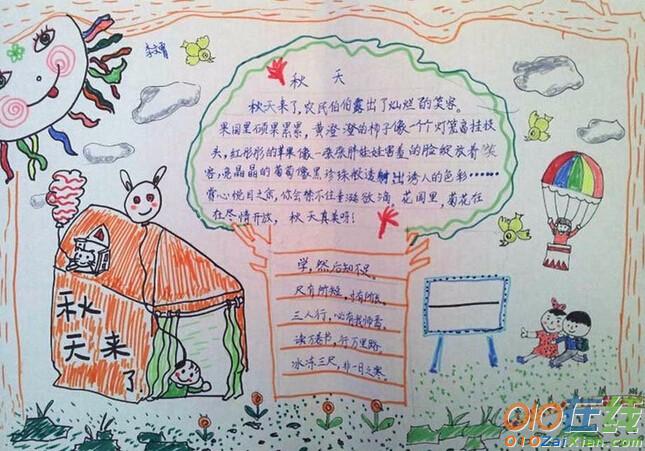 秋天
秋天来了,农民伯伯露出了灿烂的笑容。
果园里硕果累累,黄澄澄的柿子像一个个灯笼高挂枝
头,红彤彤的苹果像一张张胖娃娃害羞的脸绽放着笑
容,亮晶晶的葡萄像黑珍珠般透射出诱人的色彩……
赏心悦目之余,你会禁不住垂涎欲滴,花园里,菊花在
在尽情开放,秋天真美呀!
学,然后知不足。
尺有所短,寸有所长。
三人行,必有我师焉。
读万卷书,行万里路。
冰冻三尺,非一日之寒。
秋
天来
了
010在线
010ZaiXian.com